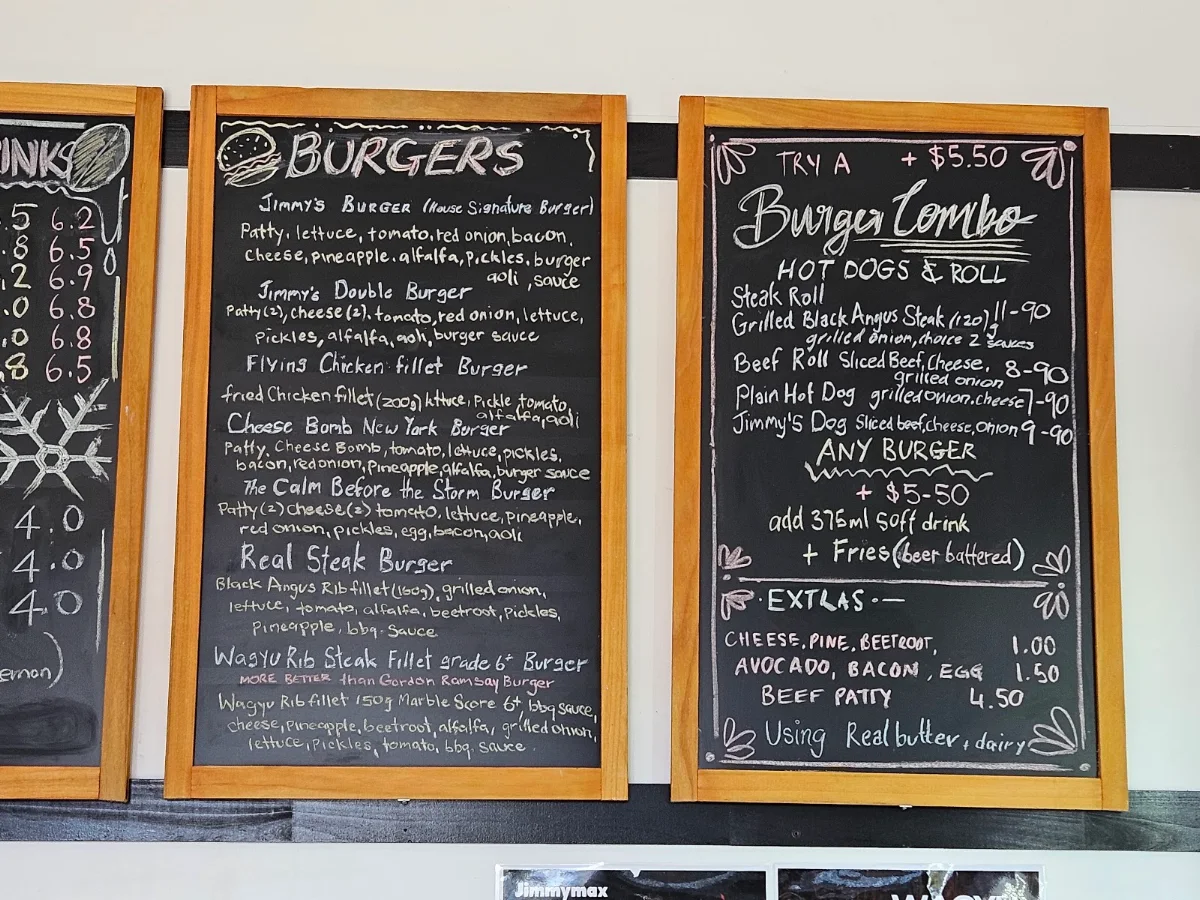 INKS
.5 6.2
.8 6.5
.2 6.9
.0 6.8
.0 6.8
.8 6.5
4.0
4.0
4.0
emon)
BURGERS
Jimmy's BURGER (House Signature Burger)
Patty, lettuce, tomato, red onion, bacon,
cheese, pineapple, alfalfa, pickles, burger
aoli, sauce
Jimmy's Double Burger
Patty(2), cheese(2), tomato, red onion, lettuce,
pickles, alfalfa, aoli, burger sauce
Flying Chicken fillet Burger
fried Chicken fillet (200g) lettuce, Pickle tomato,
alfalfa, aoli
Cheese Bomb New York Burger
Patty, Cheese Bomb, tomato, lettuce, pickles,
bacon, red onion, pineapple, alfalfa, burger sauce
The Calm Before the Storm Burger
Patty(2) cheese(2) tomato, lettuce, pineapple,
red onion, pickles, egg, bacon, aoli
Real Steak Burger
Black Angus Rib fillet (160g), grilled onion,
lettuce, tomato, alfalfa, beetroot, Pickles,
Pineapple, bbq. Sauce
Wagyu Rib Steak Fillet grade 6+ Burger
MORE BETTER than Gordon Ramsay Burger
Wagyu Rib fillet 150g Marble Score 6+ bbq sauce,
cheese, pineapple, beetroot, alfalfa, grilled onion,
lettuce, Pickles, tomato, bbq. sauce.
TRY A + $5.50
Burger Combo
HOT DOGS & ROLL
Steak Roll
Grilled Black Angus Steak (120)g 11-90
grilled onion, choice 2 sauces
Beef Roll Sliced Beef, Cheese, 8-90
grilled onion
Plain Hot Dog grilled onion, cheese 7-90
Jimmy's Dog Sliced beef, cheese, onion 9-90
ANY BURGER
+ $5-50
add 375ml soft drink
+ Fries (beer battered)
EXTRAS
CHEESE, PINE, BEETROOT, 1.00
AVOCADO, BACON, EGG 1.50
BEEF PATTY 4.50
Using Real butter + dairy
Jimmymax